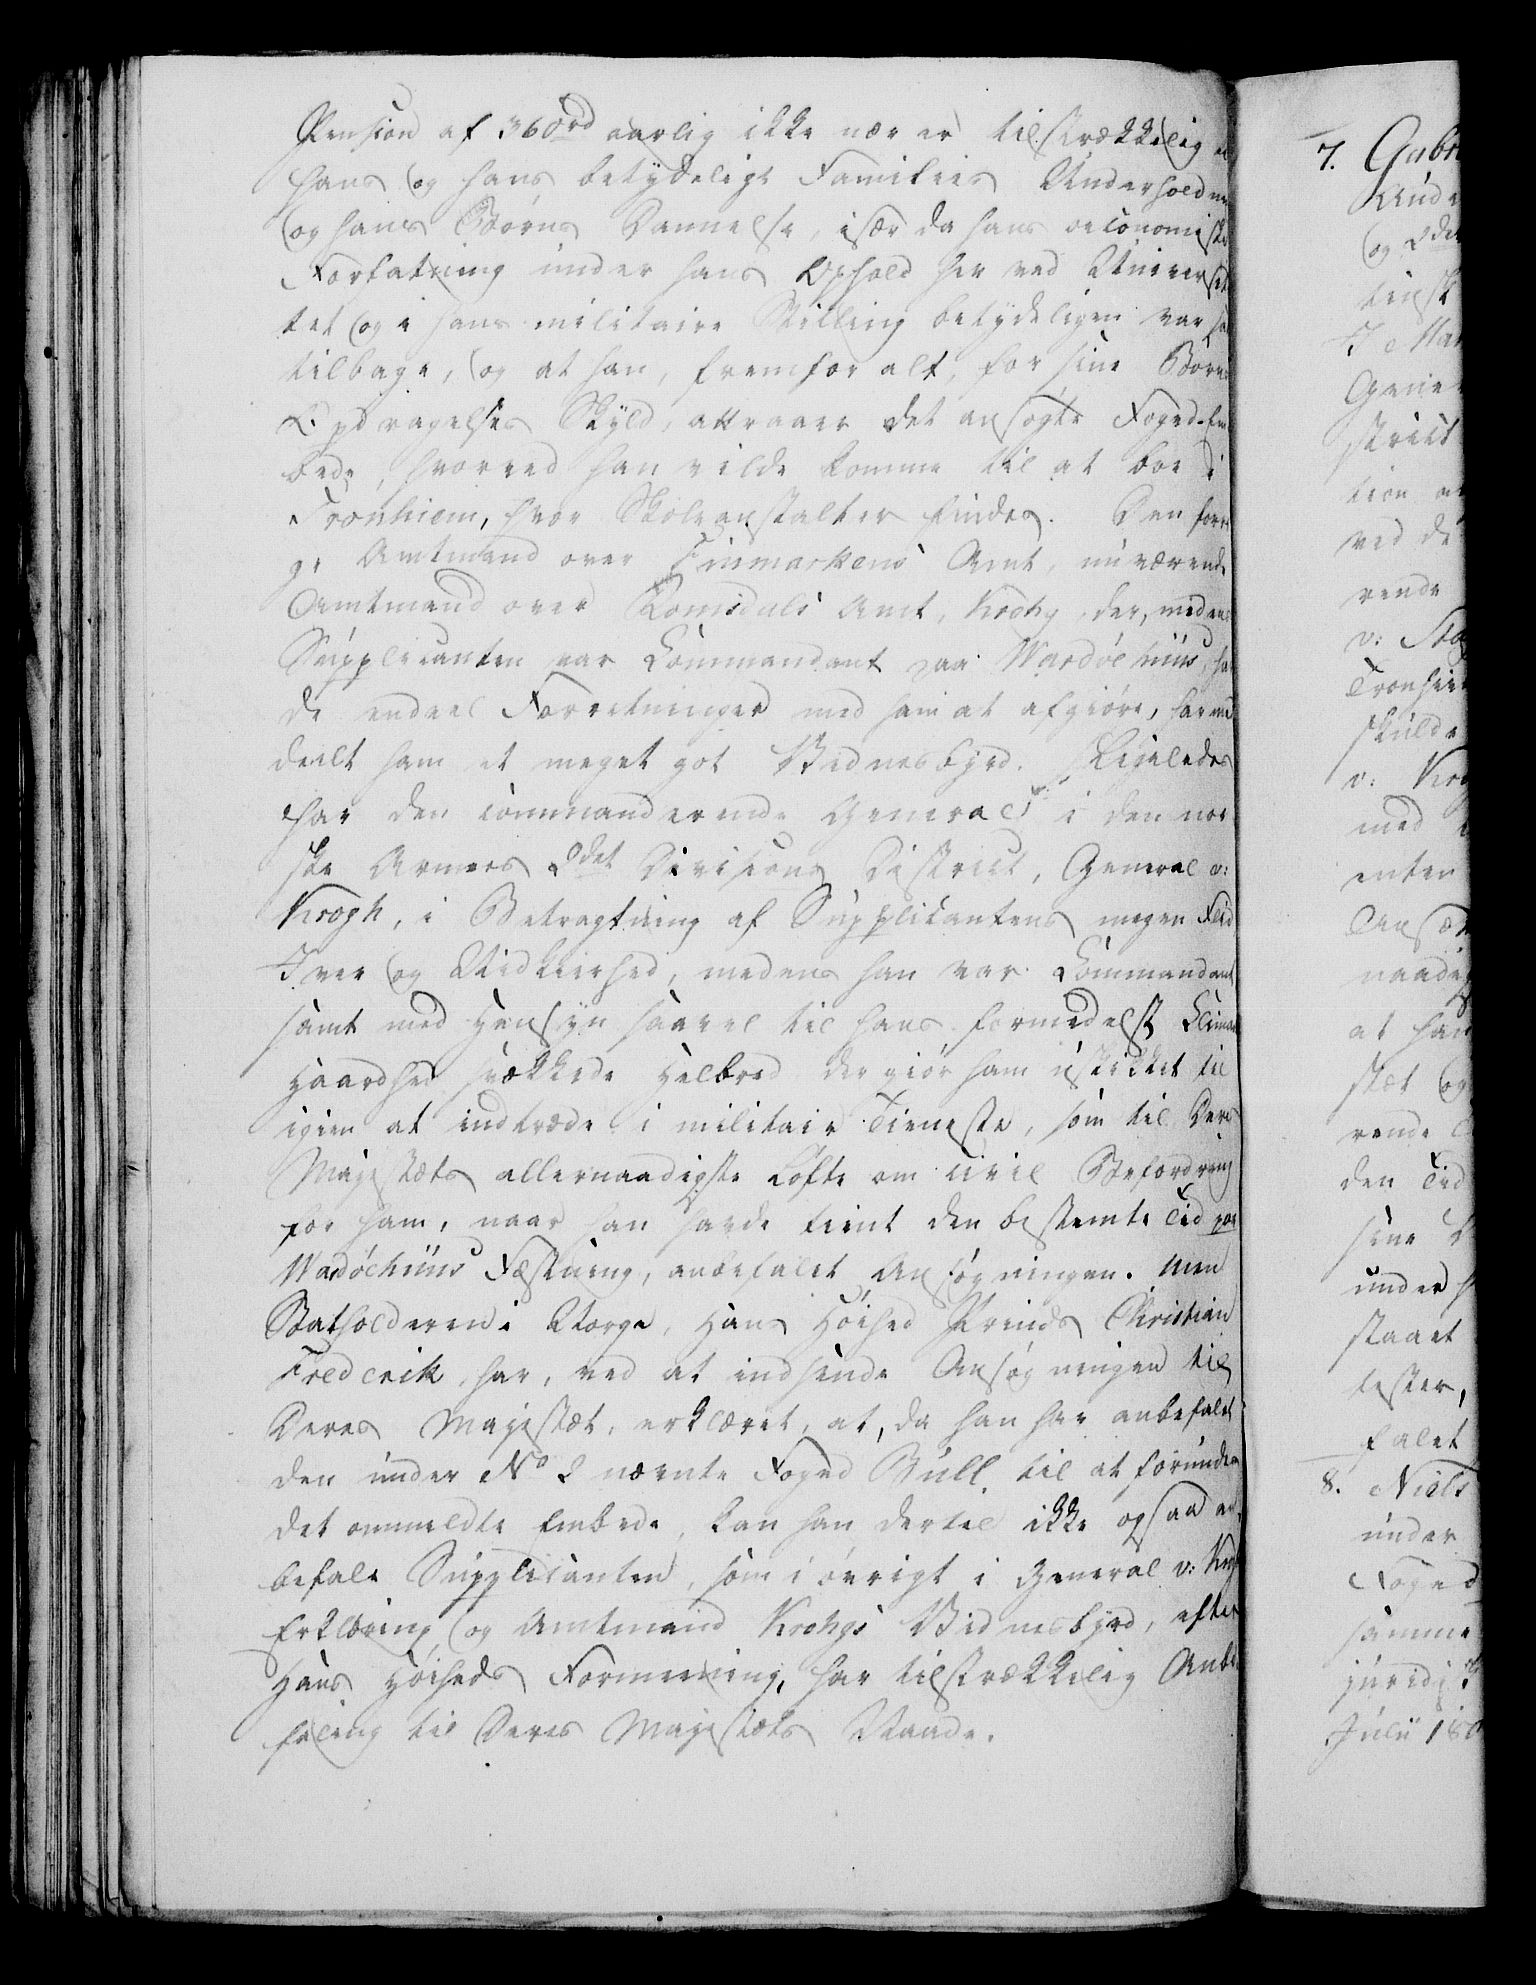 Pension af 360rd aarlig ikke nær er tilstrækkelig
hans og hans betydelige Families Underholdn
og hans Børns Dannelse, især da hans oeconomiske
Forfatning under hans Ophold her ved Universite
tet og i hans militaire Stilling betydeligen var
tilbage, og at han, fremfor alt, for sine Børns
Opdragelses Skyld, attraaer det ansøgte Foged-Em
bede, hvorved han vilde komme til at boe i
Tronhiem, hvor Skoleanstalter findes. Den forri
ge Amtmand over Finmarkens Amt, nuværende
Amtmand over Romsdals Amt, Krohg, der, medens
Supplicanten var Commandant paa Wardøehuus, ha
de endeel Forretninger med ham at afgiøre, har med
deelt ham et meget got Vidnesbyrd. Ligeledes
har den commanderende General i den nor
ske Armees 2det Divisions District, General v:
Krogh, i Betragtning af Supplicantens megen Flid
Iver og Vidkierhed, medens han var Commandant
samt med Hensyn saavel til hans formedelst Climats
Haardhed svækkede Helbred der giør ham uskikket til
igien at indtræde i militair Tieneste, som til Deres
Majestæts allernaadigste Løfte om civil Befordring
for ham, naar han havde tient den bestemte Tid paa
Wardøehuus Fæstning, anbefalet Ansøgningen. Men
Statholderen i Norge, Hans Høihed Prinds Christian
Frederik, har, ved at indsende Ansøgningen til
Deres Majestæt, erklæret, at, da han har anbefalet
den under No 2 nævnte Foged Bull til at forundes
det ommeldte Embede, kan han dertil ikke ogsaa an
befale Supplicanten, som i øvrigt i General v: Krogs
Erklæring og Amtmand Krohgs Vidnesbyrd, efter
Hans Høiheds Formeening, har tilstrækkelig Anbe
faling til Deres Majestæts Naade.
7. Gabr
og 2det
tensk
I Mar
Gener
strict
tion
ved de
rende
v: Sto
Tronhie
skulde
v: Krog
med
enten
naadig
at han
stæt og
rende
den Tid
sine
under
staaet
tester,
falet
8. Niels
under
Foged
samme
juridisk
Julii 180